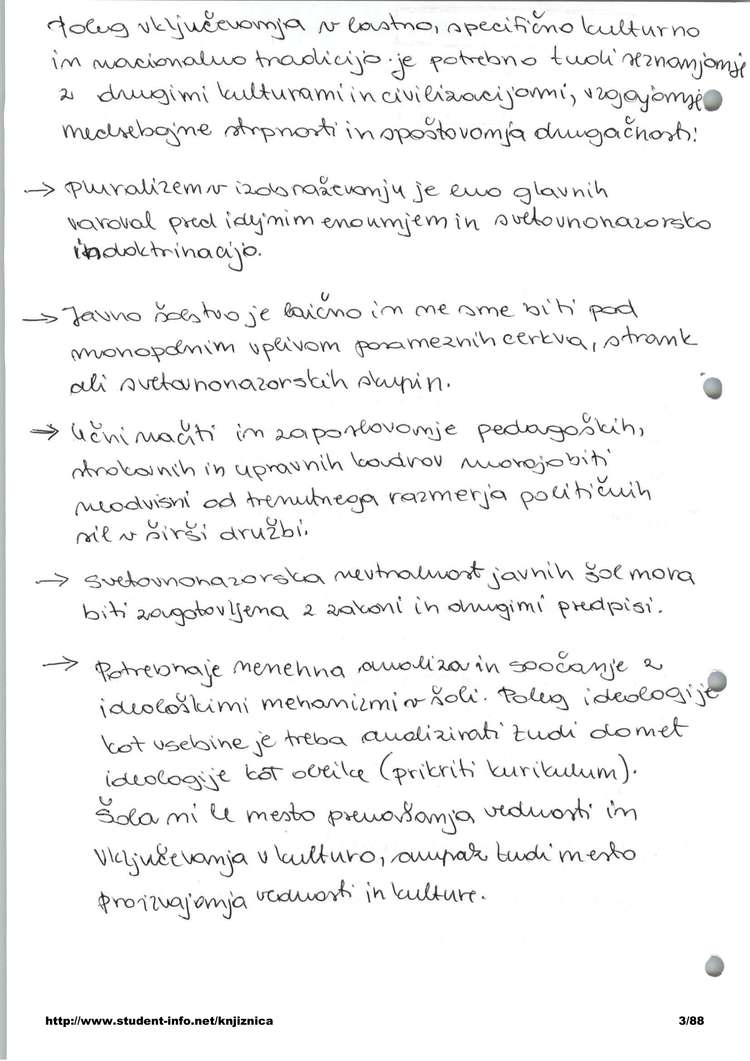 Poleg vključevanja v lastno, specifično kulturno
in nacionalno tradicijo je potrebno tudi seznanjanje
z drugimi kulturami in civilizacijami, vzgajanje
medsebojne strpnosti in spoštovanja drugačnosti!
→ Pluralizem v izobraževanju je eno glavnih
varoval pred idejnim enoumjem in svetovnonazorsko
indoktrinacijo.
→ Javno šolstvo je laično in ne sme biti pod
monopolnim vplivom posameznih cerkva, strank
ali svetovnonazorskih skupin.
→ Učni načrti in zaposlovanje pedagoških,
strokovnih in upravnih kadrov morajo biti
neodvisni od trenutnega razmerja političnih
sil v širši družbi.
→ Svetovnonazorska nevtralnost javnih šol mora
biti zagotovljena z zakoni in drugimi predpisi.
→ Potrebna je nenehna analiza in soočanje z
ideološkimi mehanizmi v šoli. Poleg ideologije
kot vsebine je treba analizirati tudi domet
ideologije kot oblike (prikriti kurikulum).
Šola ni le mesto prenašanja vednosti in
vključevanja v kulturo, ampak tudi mesto
proizvajanja vednosti in kulture.
http://www.student-info.net/knjiznica 3/88